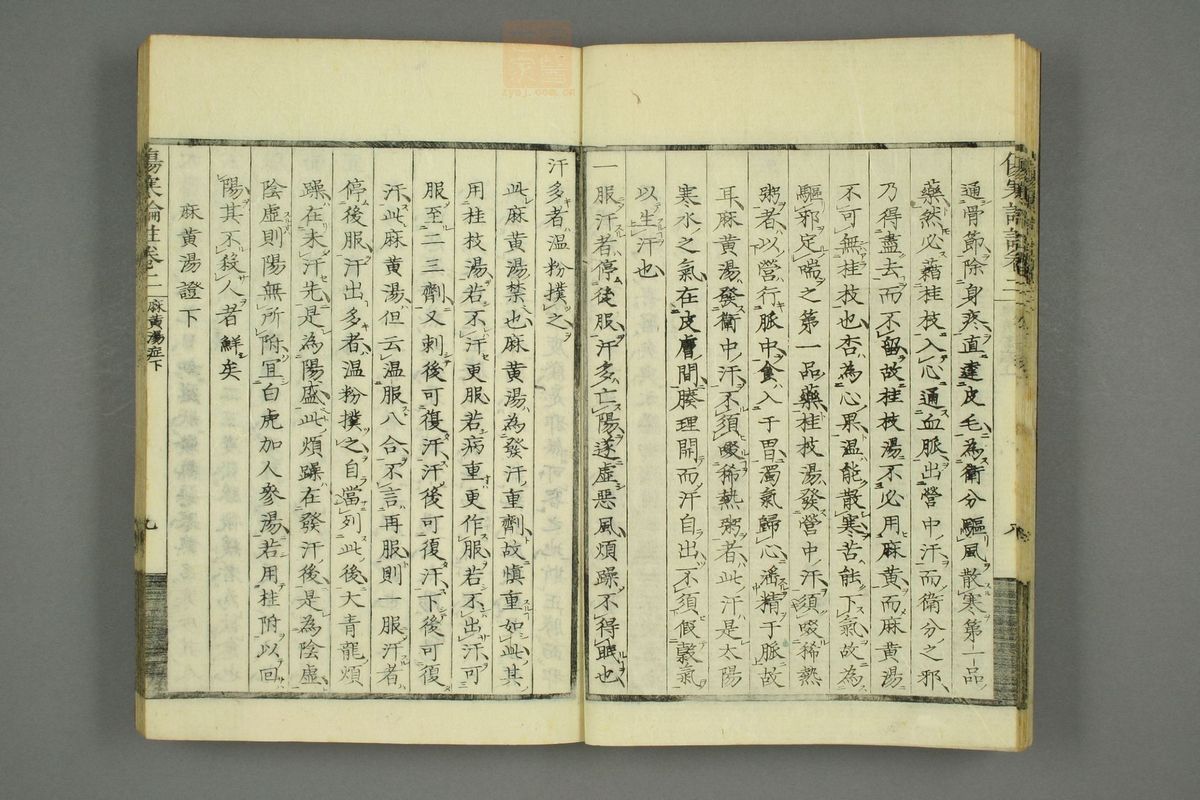 通骨節除身疼直達皮毛為衛分驅風散寒第一品
藥然必藉桂枝入心通血脈出營中汗而衛分之邪
乃得盡去而不留故桂枝湯不必用麻黃而麻黃湯
不可無桂枝也杏為心果温能散寒苦能下氣故為
驅邪定喘之第一品藥桂枝湯發營中汗須啜稀熱
粥者以營行脈中食入于胃濁氣歸心淫精于脈故
耳麻黃湯發衛中汗不須啜稀熱粥者此汗是太陽
寒水之氣在皮膚間腠理開而汗自出不須假穀氣
以生汗也
一服汗者停後服汗多亡陽遂虛惡風煩躁不得眠也
汗多者温粉撲之
此麻黃湯禁也麻黃湯為發汗重劑故慎重如此其
用桂枝湯若不汗更服若病重更作服若不出汗可
服至二三劑又刺後可復汗汗後可復汗下後可復
汗此麻黃湯但云温服八合不言再服則一服汗者
停後服汗出多者温粉撲之自當列此後大青龍煩
躁在未汗先是為陽盛此煩躁在發汗後是為陰虛
陰虛則陽無所附宜白虎加人參湯若用桂附以回
陽其不殺人者鮮矣
麻黃湯證下
傷寒論註卷二 麻黃湯症下 九